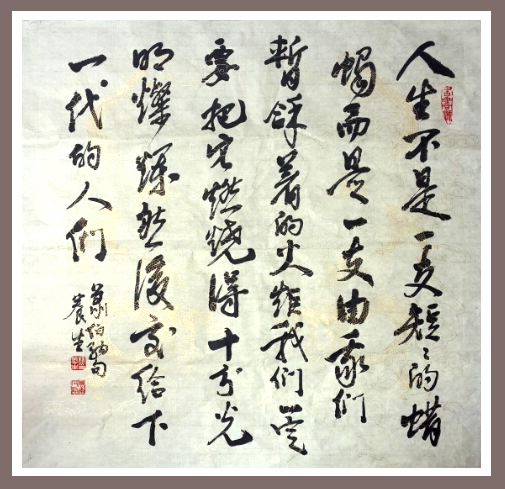 人生不是一支短〻的蜡
燭而是一支由我们
暫拿着的火炬我们一定
要把它燃烧得十分光
明燦輝然後交给下
一代的人们
萧伯纳句